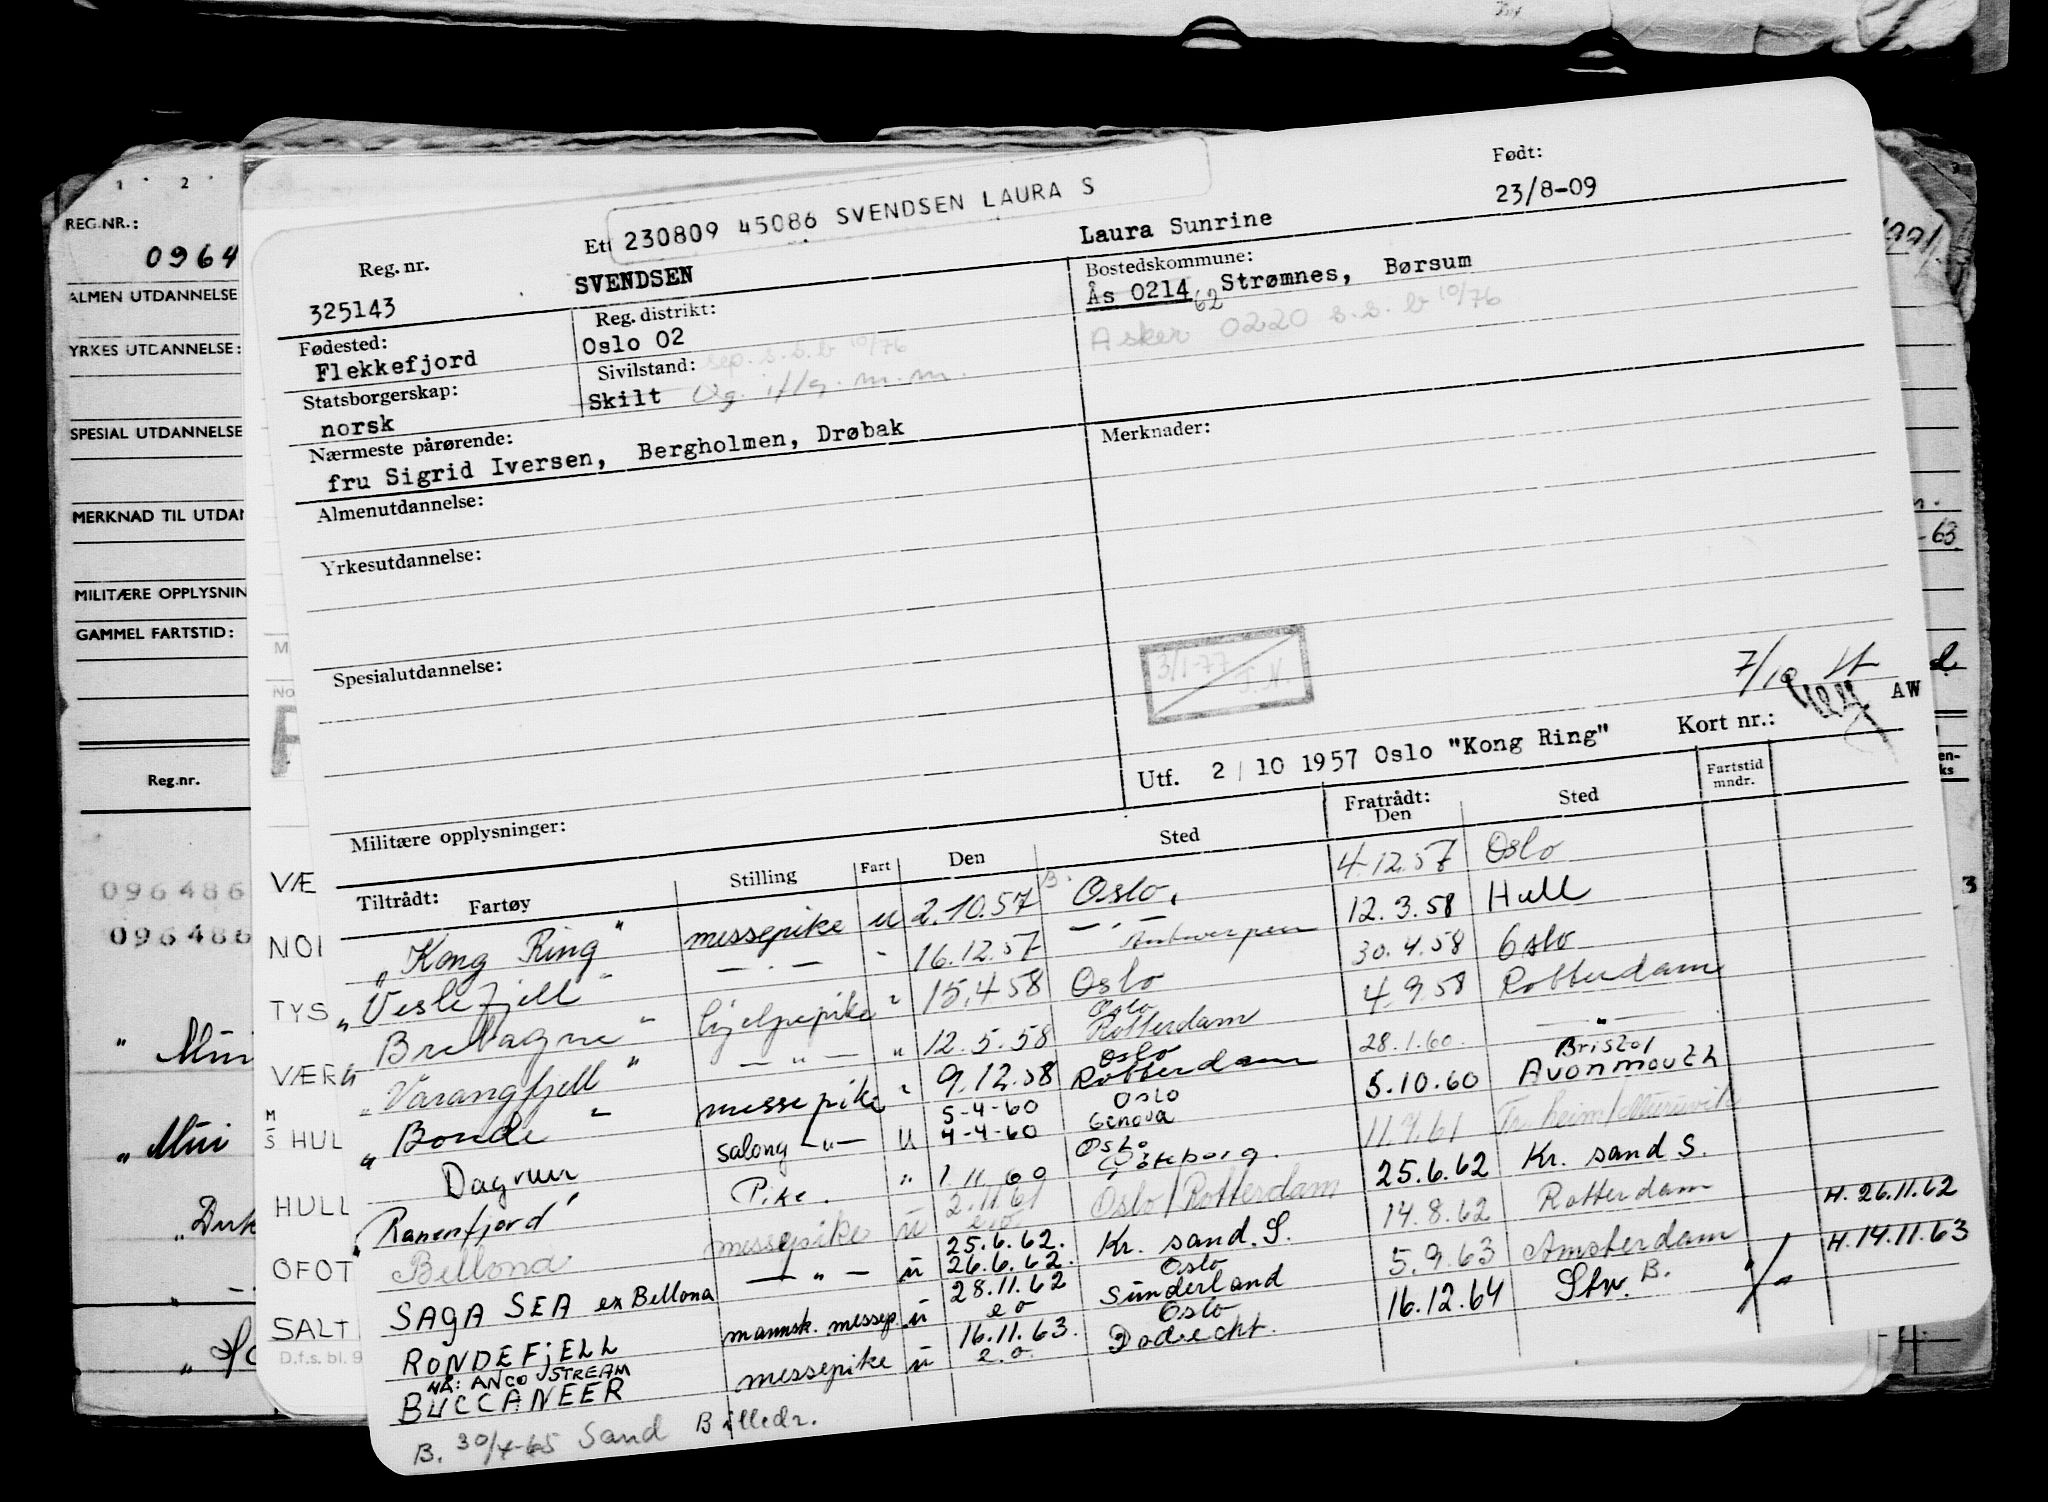 230809 45086 SVENDSEN LAURA S
Født:
23/8-09
Reg. nr.
325143
Ett
SVENDSEN
Laura Sunrine
Fødested:
Flekkefjord
Reg. distrikt:
Oslo 02
Bostedskommune:
Ås 0214 62 Strømnes, Børsum
Asker 0220 s.s.b 10/76
Statsborgerskap:
norsk
Sivilstand: sep. s.s.b 10/76
Skilt
Nærmeste pårørende:
fru Sigrid Iversen, Bergholmen, Drøbak
Merknader:
Almenutdannelse:
Yrkesutdannelse:
Spesialutdannelse:
3/1-77
7/10
AW
Utf. 2/10 1957 Oslo "Kong Ring" Kort nr.:
Militære opplysninger:
Tiltrådt: Fartøy Stilling Fart Den Sted Fratrådt: Den Sted Fartstid mndr.
"Kong Ring" messepike u 2.10.57 Oslo. 4.12.57 Oslo
"Veslefjell" — . — " 16.12.57 — " — Antwerpen 12.3.58 Hull
"Bretagne" hjelpepike " 15.4.58 Oslo 30.4.58 Oslo
"Varangfjell" — " — " 12.5.58 Oslo Rotterdam 4.9.58 Rotterdam
"Bonde" messepike " 9.12.58 Oslo Rotterdam 28.1.60. — " —
Dagrun salong — " — u 5-4-60 4-4-60 Oslo Genova 5.10.60 Bristol Avonmouth
"Ranenfjord" Pike. " 1.11.60 Oslo Göteborg. 11.9.61
Bellona messepike u 2.11.61 e.o. Oslo/Rotterdam 25.6.62 Kr. sand S.
SAGA SEA ex Bellona — " — u 25.6.62. 26.6.62. Kr. sand. S. Oslo 14.8.62 Rotterdam H. 26.11.62
RONDEFJELL mannsk. messep. u 28.11.62 e o Sunderland Oslo 5.9.63 Amsterdam H. 14.11.63
NÅ: ANCO STREAM
BUCCANEER messepike u 16.11.63. e.o. Dodrecht. 16.12.64 B.
B. 30/4-65 Sand Billedr.
1 2
REG.NR.:
0964
ALMEN UTDANNELSE
YRKES UTDANNELSE:
SPESIAL UTDANNELSE
MERKNAD TIL UTDAN
MILITÆRE OPPLYSNIN
GAMMEL FARTSTID:
Reg.nr.
096486
096486
VÆ
NOI
TYS
VÆR
M/S HUL
HULL
OFOT
SALT
D.f.s. bl. 9
63
3